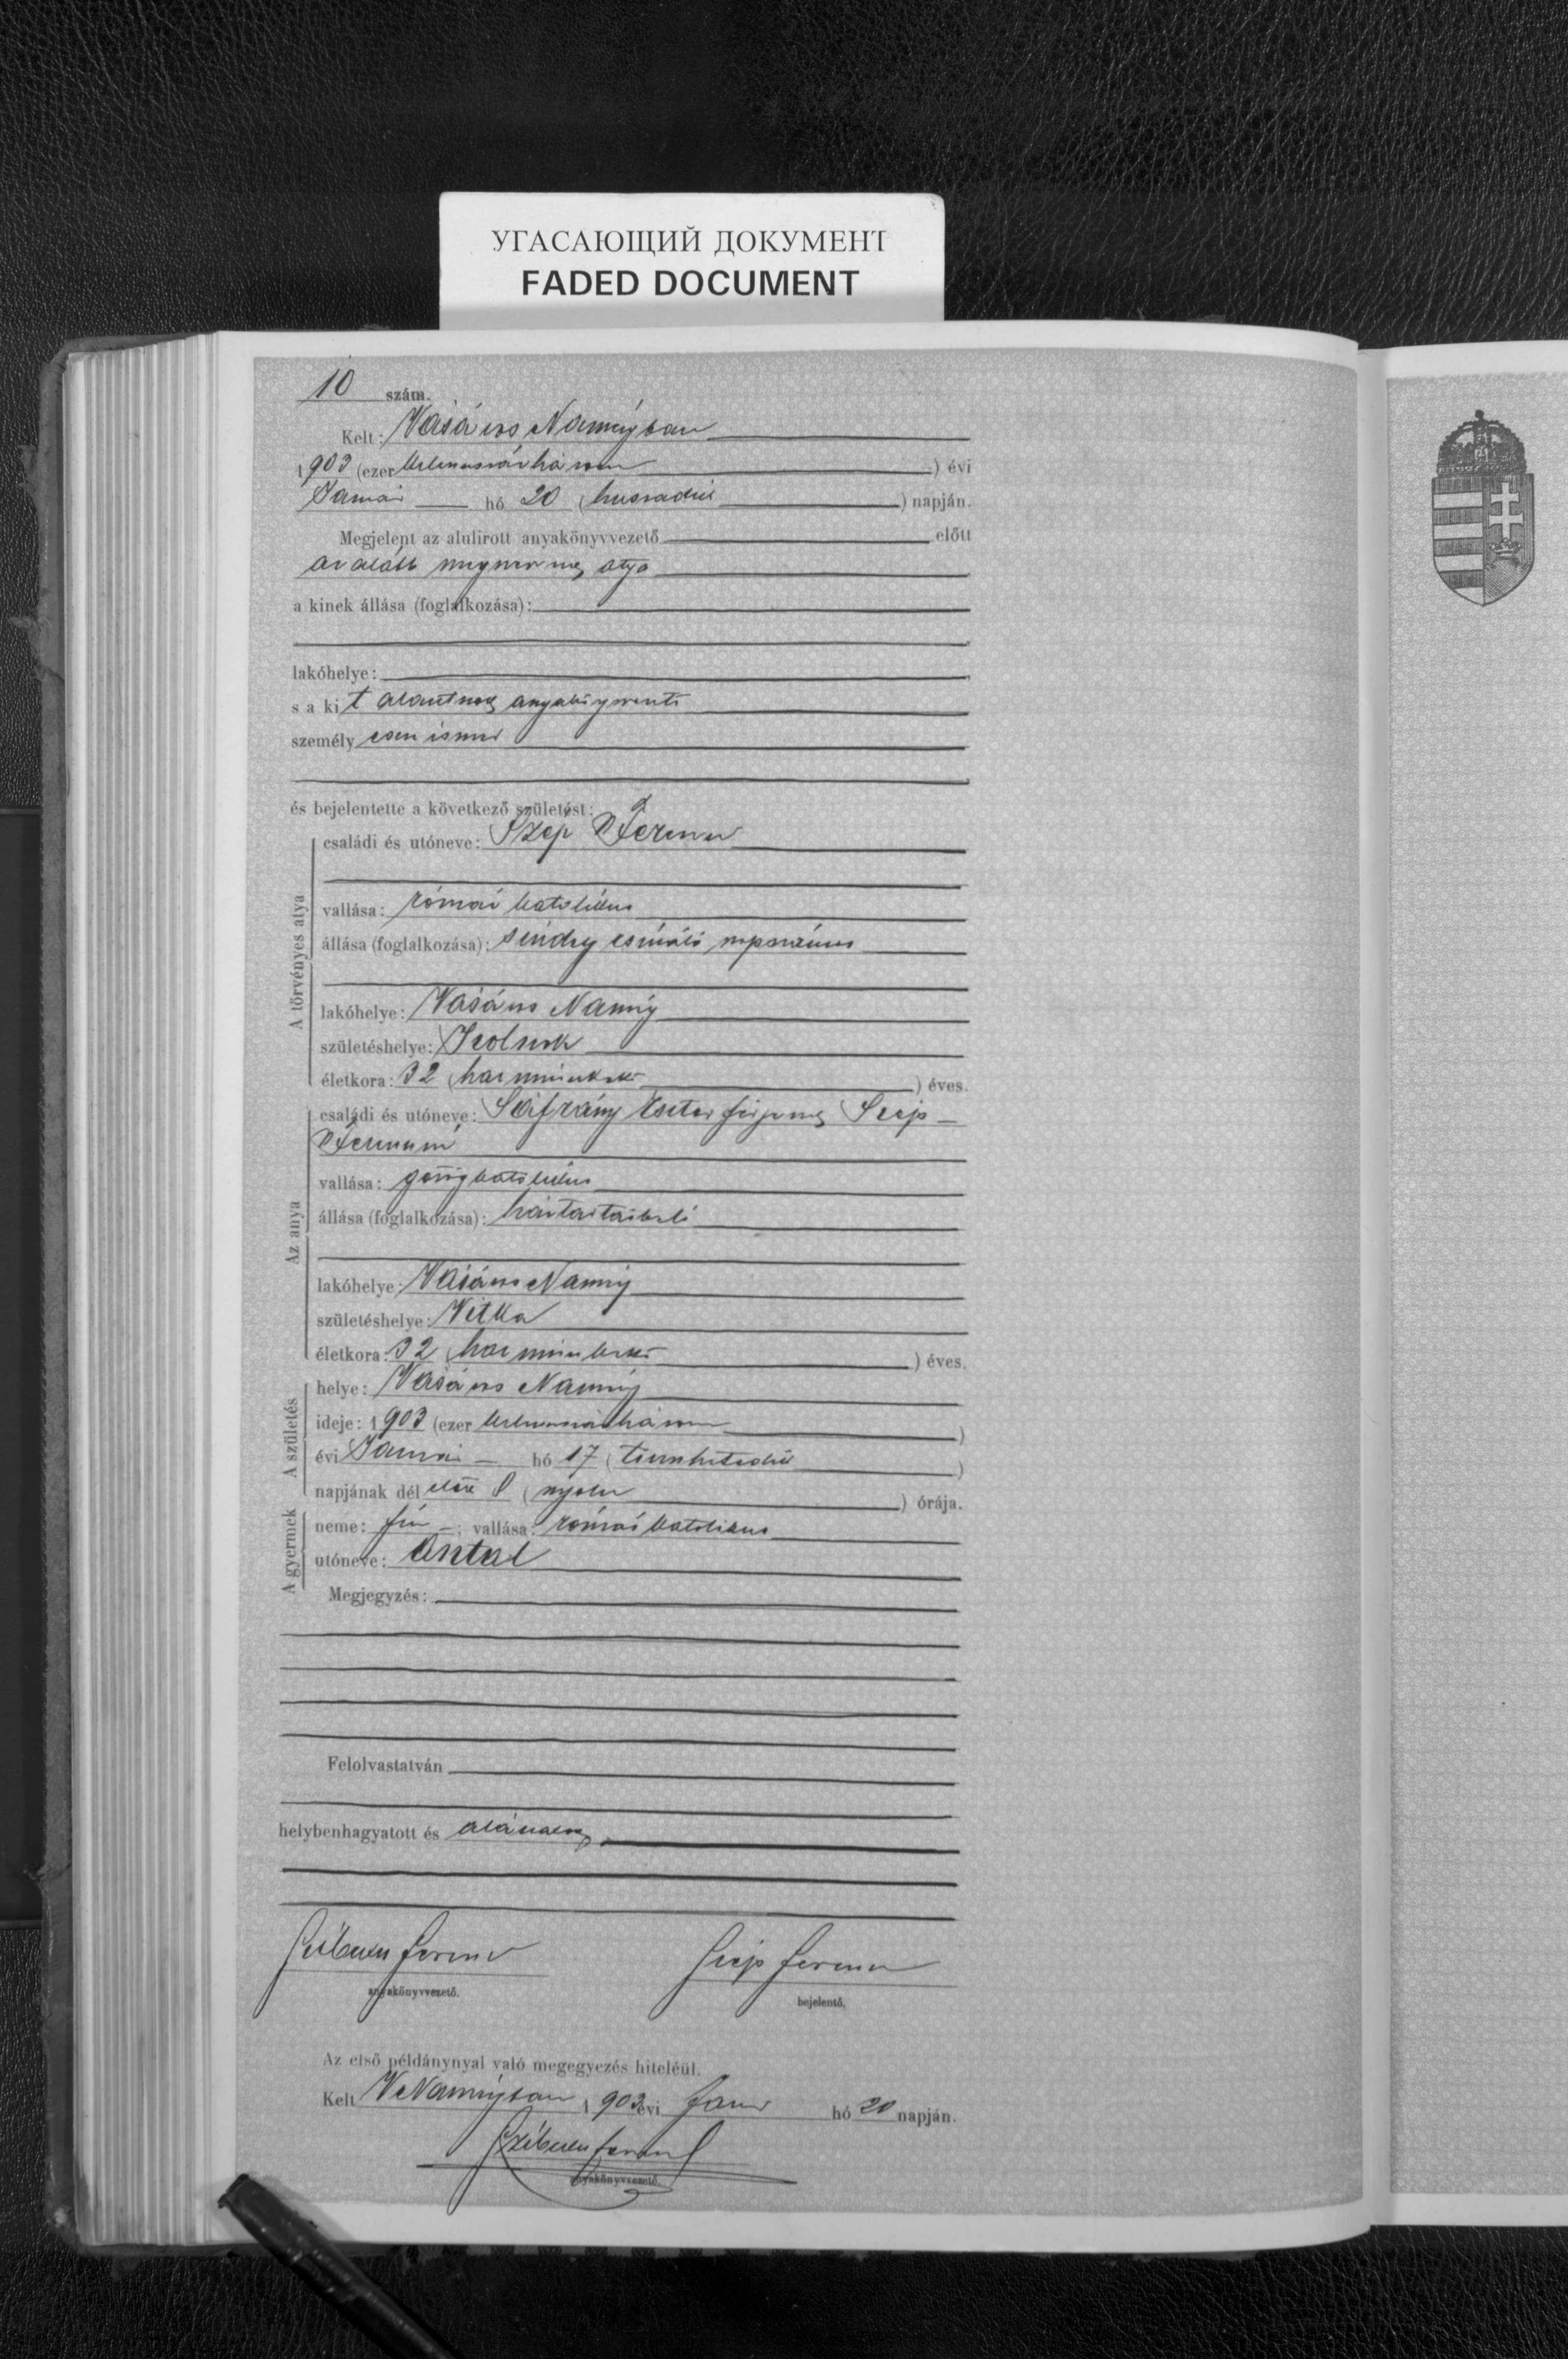 УГАСАЮЩИЙ ДОКУМЕНТ
FADED DOCUMENT
10 szám.
Kelt: Vásáros Naményban
1903 (ezer kilenczszázhárom) évi
Január hó 20 (huszadik) napján.
Megjelent az alulirott anyakönyvvezető előtt
az alább megnevezett atya
a kinek állása (foglalkozása):
lakóhelye:
s a kit alantnevezett anyakönyvvezető
személyesen ismer
és bejelentette a következő születést:
A törvényes atya
családi és utóneve: Szép Ferencz
vallása: római katolikus
állása (foglalkozása): sindely csináló napszámos
lakóhelye: Vásáros Namény
születéshelye: Szolnok
életkora: 32 (harminczkettő) éves.
Az anya
családi és utóneve: Sáfrány Eszter férjezett Szép
Ferenczné
vallása: görög katolikus
állása (foglalkozása): háztartásbeli
lakóhelye: Vásáros Namény
születéshelye: Vitka
életkora: 32 (harminczkettő) éves.
A születés
helye: Vásáros Namény
ideje: 1903 (ezer kilenczszázhárom)
évi Január hó 17 (tizenhetedik)
napjának dél előtt 8 (nyolcz) órája.
A gyermek
neme: fiú; vallása: római katolikus
utóneve: Antal
Megjegyzés:
Felolvastatván
helybenhagyatott és aláíratott
Ferencz Szép Ferencz
anyakönyvvezető. bejelentő.
Az első példánynyal való megegyezés hiteléül.
Kelt VNaményban 1903 évi Janr hó 20 napján.
Ferencz
anyakönyvvezető.